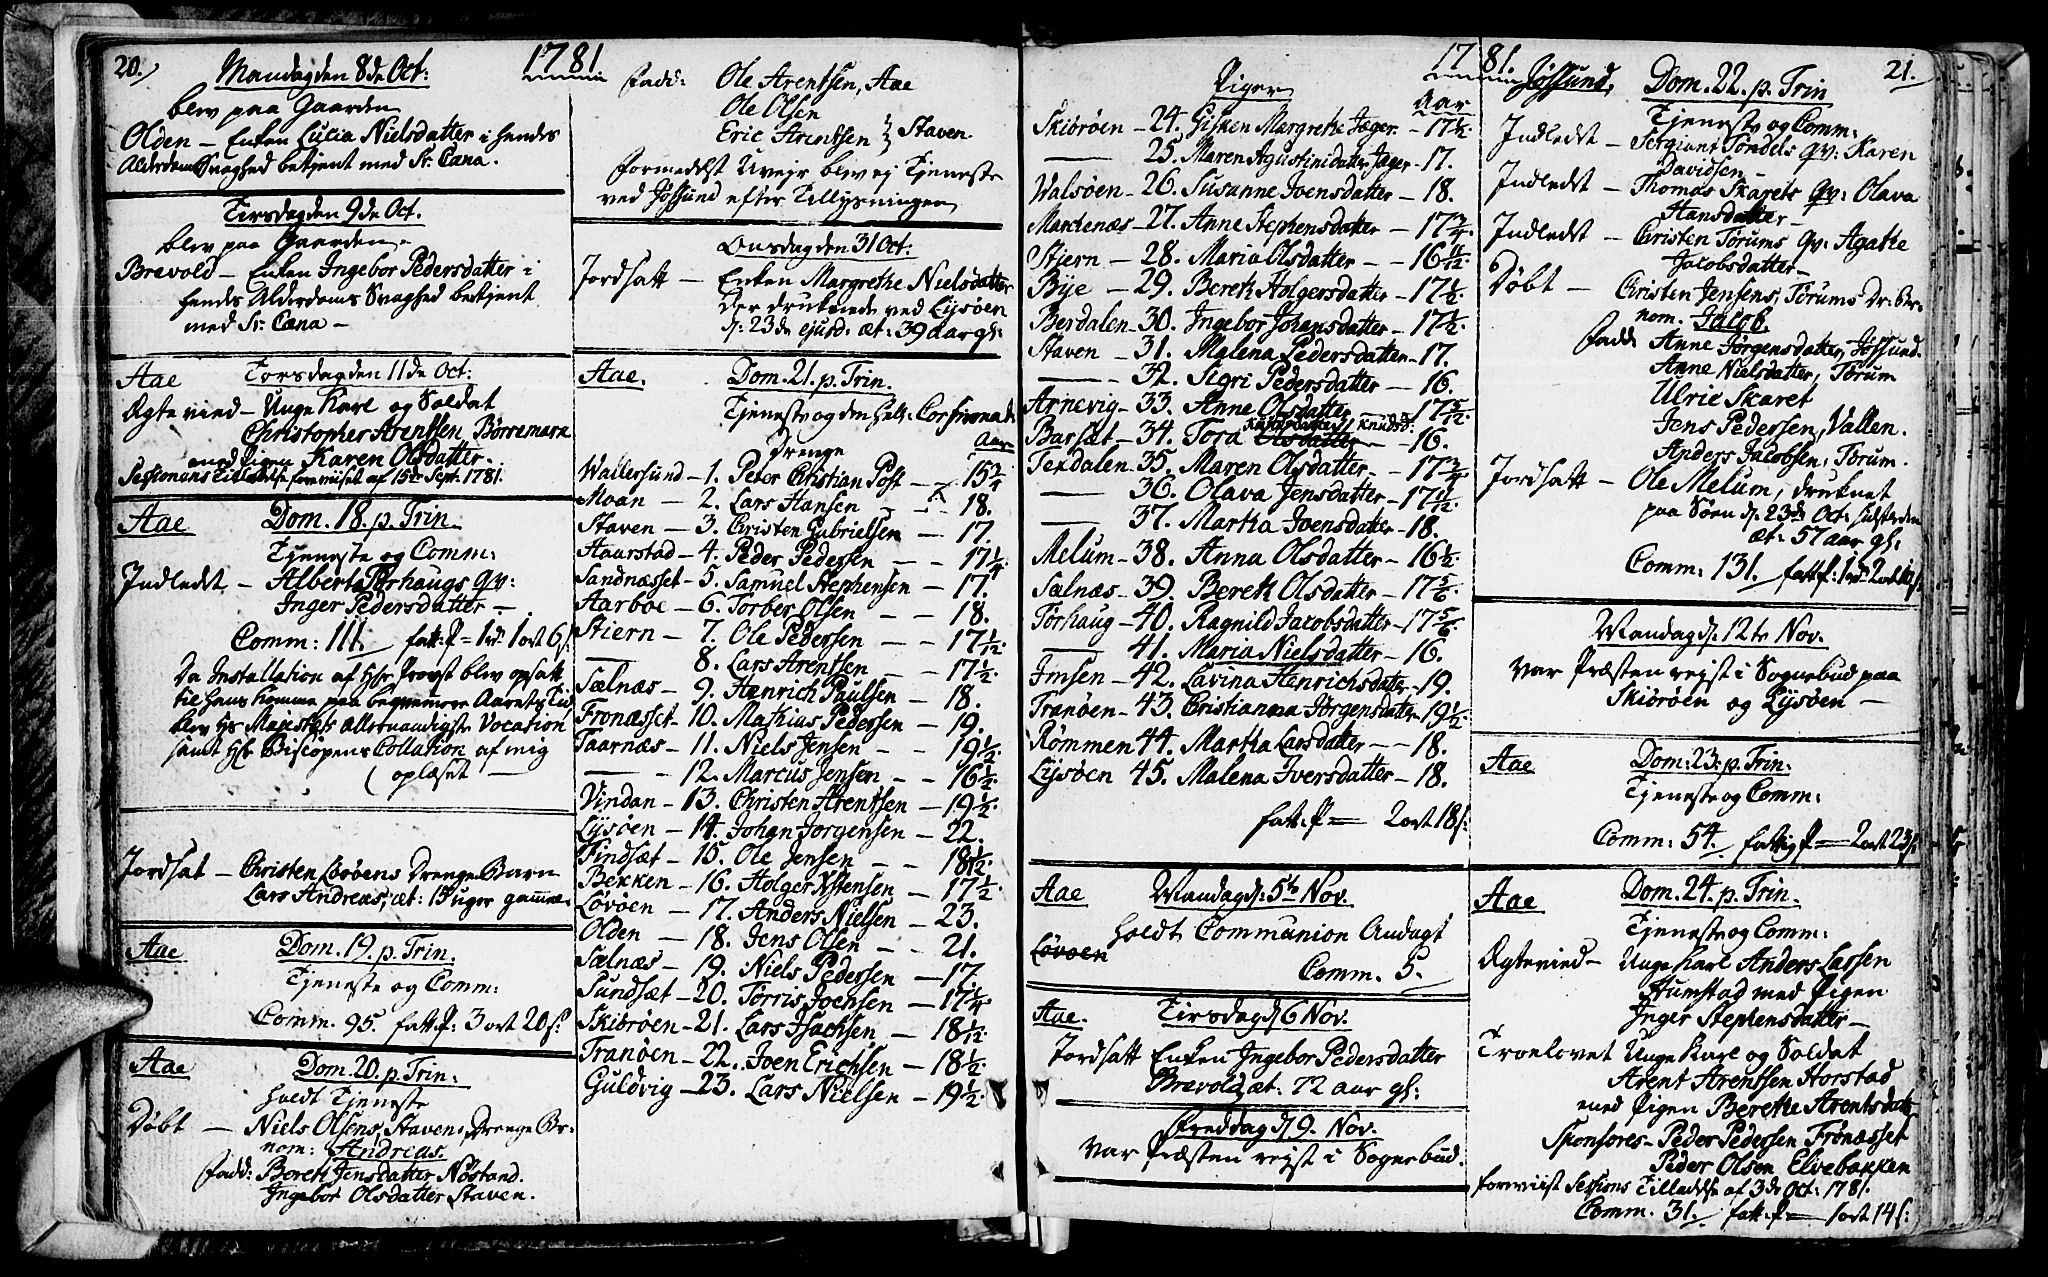 20.
1781.
Mandag den 8de Oct:
blev paa Gaarden
Olden – Enken Lucia Nielsdatter i hendes
Alderdoms Svaghed betjent med Sr: Cæna.
Tirsdag den 9de Oct.
blev paa Gaarden
Brevold – Enken Ingebor Pedersdatter i
hendes Alderdoms Svaghed betjent
med Sr: Cæna –
Torsdag den 11de Oct:
Aae
Ægtevied – Unge Karl og Soldat
Christopher Arentsen Børremark
med Pigen Karen Olsdatter.
Sessionens Tilladelse forviiset af 15de Sept. 1781.
Aae Dom. 18. p. Trin.
Tjeneste og Comm:
Indledt – Albert Tørhaugs qv:
Inger Pedersdatter –
Comm: 111. fatt: P = 1 rd: 1 ort 6 s:
Da Installation af Hr Provst blev opsatt
til hans Komme paa beqvemmere Aarets Tid
blev Hs Majestets allernaadigste Vocation
samt Hr Biscopens Collation af mig
oplæset –
Jordsat – Christen Løvøens Drenge Barn
Lars Andreas, æt: 1 Juger gammel
Aae Dom. 19. p. Trin.
Tjeneste og Comm:
Comm. 95. fatt. P: 3 ort 20 s:
Aae Dom. 20. p. Trin:
holdt Tjeneste
Døbt – Niels Olsens, Staven, Drenge Br:
nom: Andreas.
Fadd: Bereth Jensdatter Nøstand.
Ingebor Olsdatter Staven.
Fadd: Ole Arentsen, Aae
Ole Olsen
Eric Arentsen } Staven
Formedelst Uvejr blev ej Tjeneste
ved Jøssund efter Tillysningen
Onsdag den 31 Oct:
Jordsatt – Enken Margrethe Nielsdatter
der druknede ved Lysøen
d: 23de ejusd: æt: 39 aar gl:
Aae. Dom. 21. p. Trin.
Tjeneste og den hell: Confirmat:
Drenge Aar
Vallersund – 1. Peter Christian Post – 15 3/4
Moan – 2. Lars Hansen – 18.
Staven – 3. Christen Gabrielsen – 17.
Haarstad – 4. Peder Pedersen – 17 1/4
Sandnæsset – 5. Samuel Stephensen – 17.
Aarboe – 6. Torber Olsen – 18.
Stiern – 7. Ole Pedersen – 17 1/12.
— 8. Lars Arentsen – 17 1/2.
Sælnæs – 9. Henrich Paulsen – 18.
Fronæsset – 10. Mathias Pedersen – 19.
Taarnæs – 11. Niels Jensen – 19 1/2.
— 12. Marcus Jensen – 16 1/2.
Vindan – 13. Christen Arentsen – 19 1/2.
Lysøen – 14. Johan Jorgensen – 22.
Findsæt – 15. Ole Jensen – 18 1/2.
Bekken – 16. Holger Ystensen – 17 1/2.
Løvøen – 17. Anders Nielsen – 23.
Olden – 18. Jens Olsen – 21.
Sælnæs – 19. Niels Pedersen – 17.
Sundsæt – 20. Tørris Joensen – 17 1/4.
Skiørøen – 21. Lars Isachsen – 18 1/12.
Tranøen – 22. Joen Erichsen – 18 1/2.
Guldvig – 23. Lars Nielsen – 19 1/2.
1781.
21.
Piger
Aar
Skiørøen – 24. Gisken Margrethe Jæger – 17 1/2.
— 25. Maren Agustinidatter Jager – 17.
Valsøen – 26. Susanne Ivensdatter – 18.
Martenæs – 27. Anne Stephensdatter – 17 3/4.
Stjern – 28. Maria Olsdatter – 16 11/12.
Bije – 29. Bereth Holgersdatter – 17 1/2.
Berdalen – 30. Ingebor Johansdatter – 17 1/2.
Staven – 31. Malena Pedersdatter – 17.
— 32. Sigri Pedersdatter – 16.
Arnevig – 33. Anne Olsdatter – 17 5/12.
Barsæt – 34. Tora Olsdatter Knudsd: – 16.
Texdalen – 35. Maren Olsdatter – 17 3/4.
— 36. Olava Jensdatter – 17 11/12.
— 37. Martha Ivensdatter – 18.
Melum – 38. Anna Olsdatter – 16 1/2.
Sælnæs – 39. Bereth Olsdatter – 17 5/6.
Tørhaug – 40. Ragnild Jacobsdatter – 17 5/6.
— 41. Maria Nielsdatter – 16.
Imsen – 42. Lavina Henrichsdater – 19.
Tranøen – 43. Christianna Jørgensdatter 19 1/2.
Rømmen 44. Martha Larsdatter – 18.
Lysøen 45. Malena Iversdatter – 18.
fatt. P = 2 ort 18 s:
Aae Mandag d: 5te Nov.
holdt Communion Andagt
Løvøen
Comm. 5.
Aae. Tirsdag d 6 Nov.
Jordsatt Enken Ingebor Pedersdatter
Brevold, æt: 72 aar gl:
Freddag d 9. Nov.
var Præsten rejst i Sognebud.
Jøssund, Dom. 22. p. Trin
Tjeneste og Comm:
Indledt – Sergiant Tøndels qv: Karen
Davidsen –
Indledt – Thomas Skarets qv: Olava
Hansdatter –
Indledt – Christen Tørums qv: Agathe
Jacobsdatter –
Døbt – Christen Jensens, Tørums Dr: Br:
nom. Jacob.
Fadd: Anne Jørgensdatter, Jøssund.
Anne Nielsdatter, Tørum
Ulric Skaret
Jens Pedersen, Vallen.
Anders Jacobsen, Tørum.
Jordsatt – Ole Melum, druknet
paa Søen d: 23de Oct: sidstleden
æt: 57 aar gl:
Comm: 131. fatt P: 1 rd: 2 ort 10 s:
Mandag d: 12te Nov.
var Præsten rejst i Sognebud paa
Skiørøen og Lysøen –
Aae Dom: 23. p. Trin:
Tjeneste og Comm:
Comm: 54. fattig P = 2 ort 23 s:
Aae Dom. 24. p. Trin.
Tjeneste og Comm:
Ægtevied – Unge Karl Anders Larsen
Humstad med Pigen
Inger Stephensdatter –
Troelovet Unge Karl og Soldat
Arent Arentsen Horstad
med Pigen Berethe Arentsdatt:
Sponsores – Peder Pedersen Frønæsset
Peder Olsen Elvebakken
forviist Sessions Tilladelse af 3de Oct: 1781.
Comm. 31. fatt. P = 1 ort 14 s: